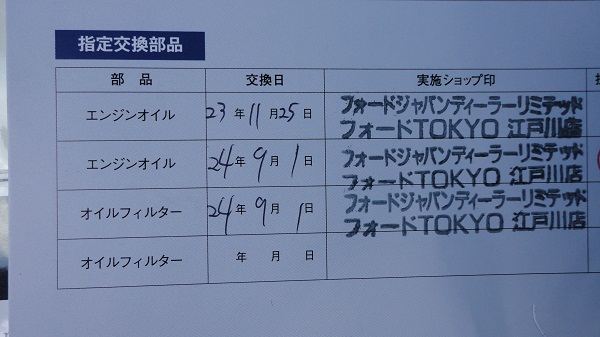 指定交換部品
部 品 交換日 実施ショップ印
エンジンオイル 23年11月25日 フォードジャパンディーラーリミテッド
フォードTOKYO 江戸川店
エンジンオイル 24年9月1日 フォードジャパンディーラーリミテッド
フォードTOKYO 江戸川店
オイルフィルター 24年9月1日 フォードジャパンディーラーリミテッド
フォードTOKYO 江戸川店
オイルフィルター 年 月 日